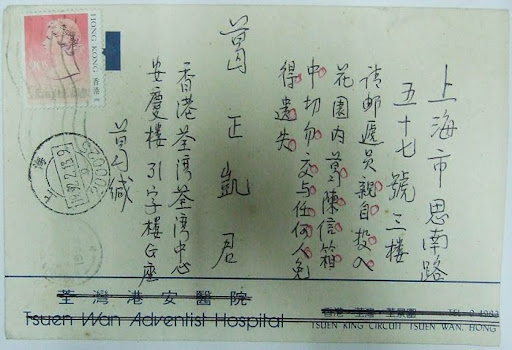 上海市思南路
五十七號三樓
请邮遞員親自投入
花園内葛陳信箱
中切勿交与任何人免
得遗失
葛正凱君
香港荃灣荃灣中心
安慶樓31字樓G座
葛缄
HONG KONG 香港
上海
荃灣港安醫院
Tsuen Wan Adventist Hospital
香港·荃灣·荃景圍
TSUEN KING CIRCUIT TSUEN WAN, HONG